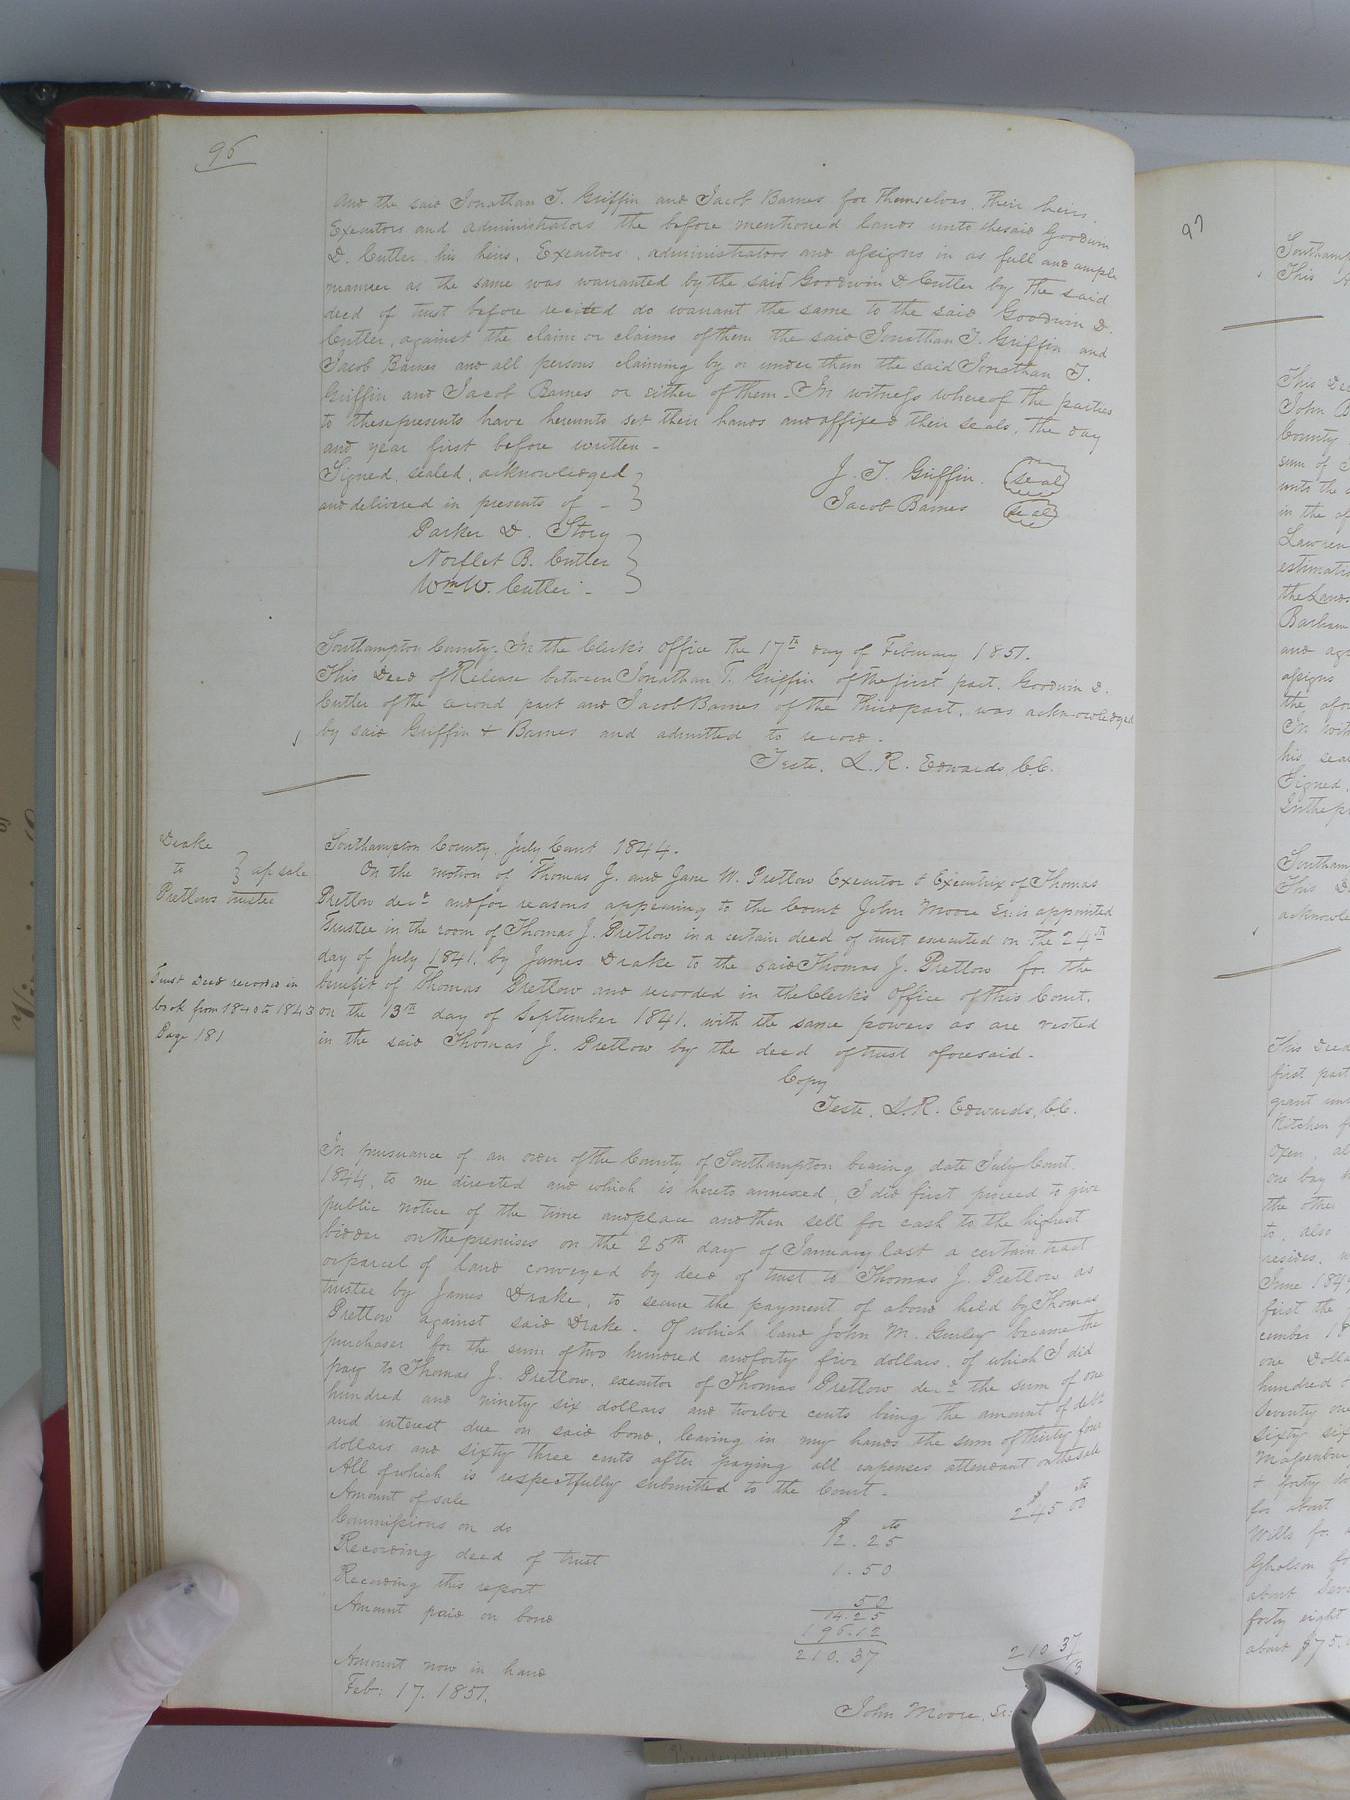 96
And the said Jonathan T. Griffin and Jacob Barnes for themselves, their heirs,
Executors and administrators the before mentioned lands unto thesaid Goodwin
D. Cutler his heirs, Executors, administrators and assigns in as full and ample
manner as the same was warranted by the said Goodwin D Cutler by the said
deed of trust before recited do warrant the same to the said Goodwin D.
Cutler, against the claim or claims of them the said Jonathan T. Griffin and
Jacob Barnes and all persons claiming by or under them the said Jonathan T.
Griffin and Jacob Barnes or either of them. In witness whereof the parties
to these presents have hereunto set their hands and affixed their seals, the day
and year first before written -
Signed, sealed, acknowledged
and delivered in presents of -
J. T. Griffin. seal
Jacob Barnes seal
Parker D. Story
Norflet B. Cutler
Wm W. Cutler -
Southampton County. In the Clerk's office the 17th day of February 1851.
This Deed of Release between Jonathan T. Griffin of the first part, Goodwin D.
Cutler of the second part and Jacob Barnes of the third part, was acknowledged
by said Griffin & Barnes and admitted to record.
Teste. L. R. Edwards, C.C.
Drake
to
Pretlows trustee
ap sale
Trust Deed recorded in
book from 1840 to 1843
Page 181
Southampton County, July Court 1844.
On the motion of Thomas J. and Jane W. Pretlow Executor & Executrix of Thomas
Pretlow decd and for reasons appearing to the Court John Moore Sr: is appointed
Trustee in the room of Thomas J. Pretlow in a certain deed of trust executed on the 24th
day of July 1841, by James Drake to the said Thomas J. Pretlow for the
benefit of Thomas Pretlow and recorded in the Clerk's office of this Court,
on the 13th day of September 1841, with the same powers as are vested
in the said Thomas J. Pretlow by the deed of trust aforesaid.
Copy
Teste. L.R. Edwards, C.C.
In pursuance of an order of the County of Southampton bearing date July Court
1844, to me directed and which is hereto annexed, I did first proceed to give
public notice of the time and place and then sell for cash to the highest
bidder on the premises on the 25th day of January last a certain tract
or parcel of land conveyed by deed of trust to Thomas J. Pretlow as
trustee by James Drake, to secure the payment of abond held by Thomas
Pretlow against said Drake. Of which land John M. Gurley became the
purchaser for the sum of two hundred and forty five dollars, of which I did
pay to Thomas J. Pretlow, executor of Thomas Pretlow decd the sum of one
hundred and ninety six dollars and twelve cents being the amount of debt
and interest due on said bond, leaving in my hands the sum of thirty four
dollars and sixty three cents after paying all expenses attendant on the sale
All of which is respectfully submitted to the Court -
Amount of sale $ cts 245 00
Commissions on do $ cts 12.25
Recording deed of trust 1.50
Recording this report 50
14.25
Amount paid on bond 196.12
210.37 210 37
Amount now in hand
Feb: 17. 1851.
John Moore, Sr:
97
Southamp
This
This Dee
John B
County
sum of
unto the
in the
Lawren
estimati
the Lands
Barham
and
assigns
the afor
In wit
his sea
Signed,
In the pr
Southam
This D
acknowle
This Deed
first part
grant un
Kitchen
Open, al
one bay
the other
to, also
resides,
June 184
first the
cember 18
one Dolla
hundred
Seventy one
Sixty six
Massenbur
& forty
for about
Wills for
Gholson for
about Seve
forty eight
about $75.